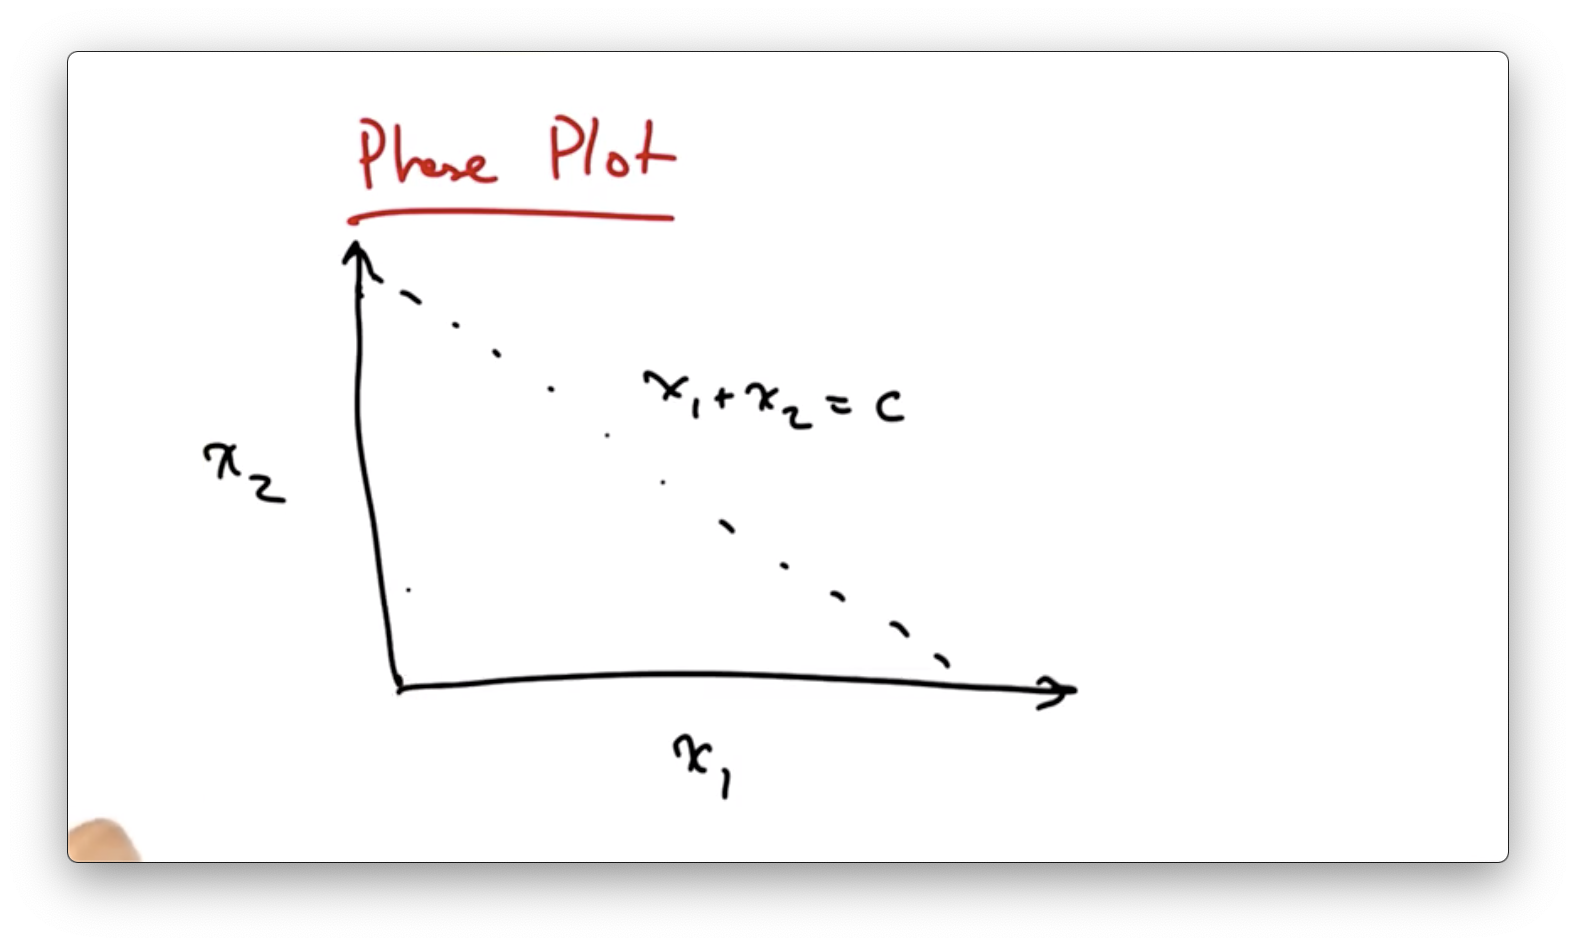 Phase Plot
x₁ + x₂ = c
x₂
x₁